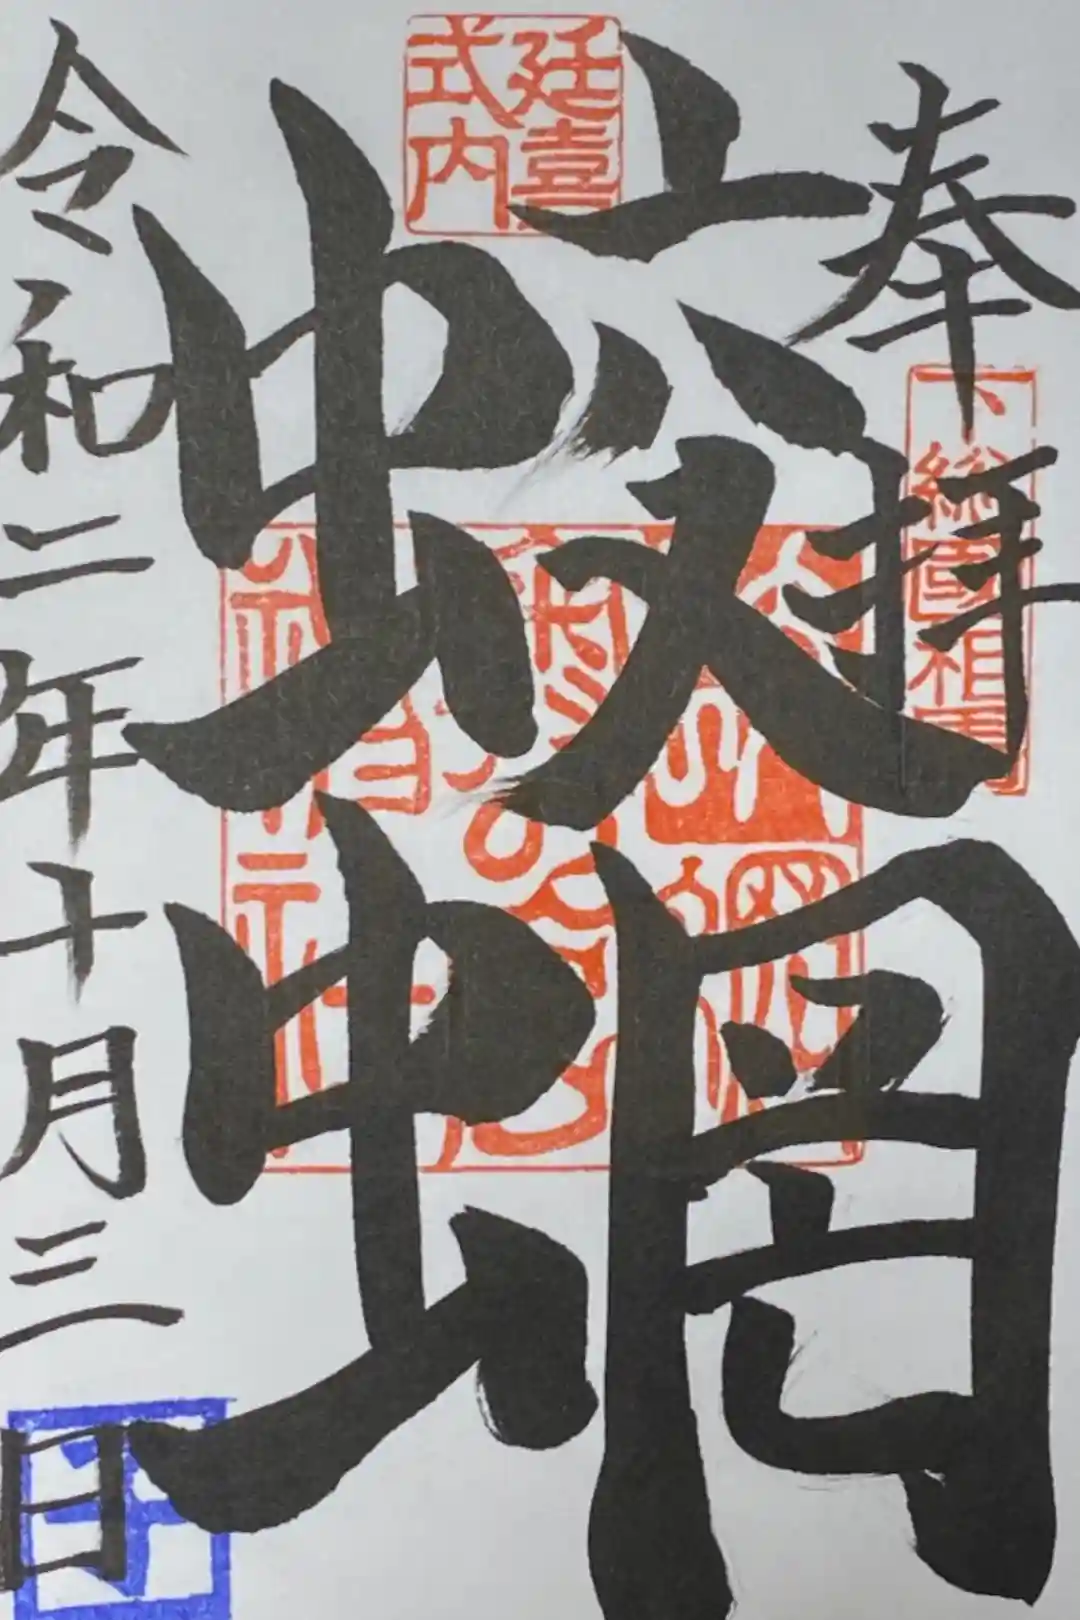 奉拝
下総國相馬
延喜式内
蛟蝄
令和二年十月三日
子